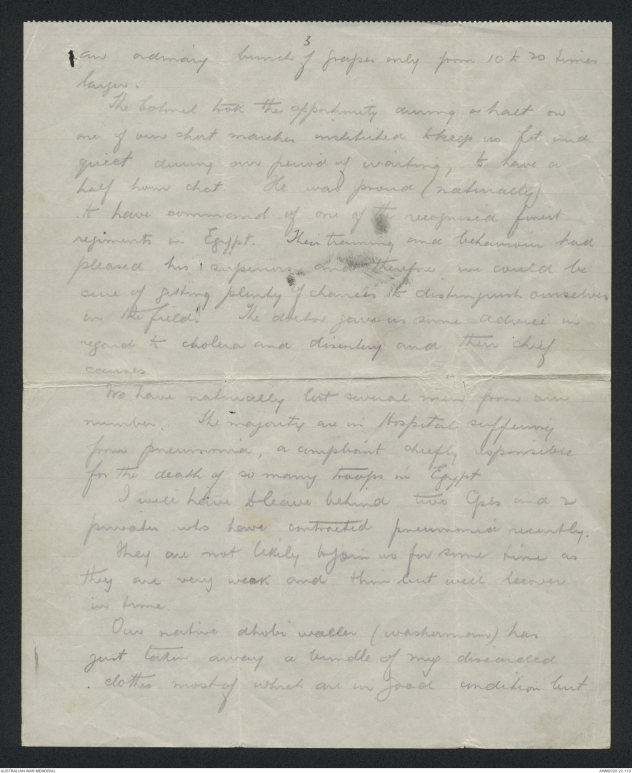 3
an ordinary bunch of grapes only from 10 to 20 times
larger.
The Colonel took the opportunity during a halt on
one of our short marches instituted to keep us fit and
quiet during our period of waiting, to have a
half hour chat. He was proud (naturally)
to have command of one of the recognised finest
regiments in Egypt. Their training and behaviour had
pleased his superiors and therefore we could be
sure of getting plenty of chances to distinguish ourselves
in the field. The doctor gave us some advice in
regard to cholera and disentery and their chief
causes
We have naturally lost several men from our
number. The majority are in Hospital suffering
from pneumonia, a complaint chiefly responsible
for the death of so many troops in Egypt
I will have to leave behind two Cpls and 2
privates who have contracted pneumonia recently.
They are not likely to join us for some time as
they are very weak and thin but will recover
in time.
Our native dhobi waller (washerman) has
just taken away a bundle of my discarded
clothes most of which are in good condition but
AUSTRALIAN WAR MEMORIAL